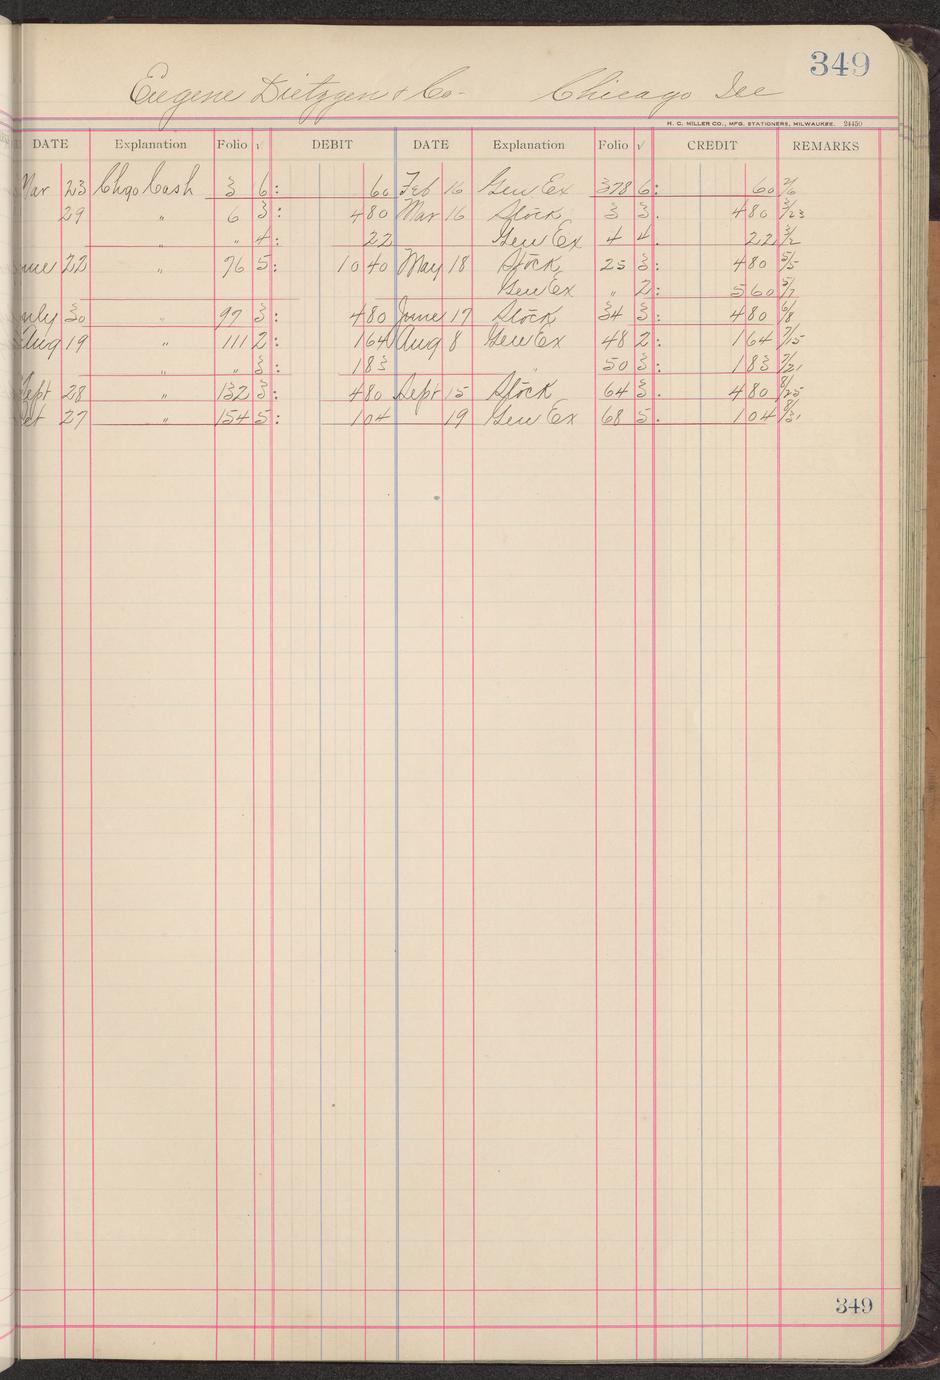 349
Eugene Dietzgen & Co- Chicago Ill
H. C. MILLER CO., MFG. STATIONERS, MILWAUKEE. 24450
DATE Explanation Folio √ DEBIT DATE Explanation Folio √ CREDIT REMARKS
Mar 23 Chgo Cash 3 6: 60 Feb 16 Gen Ex 378 6: 60 2/6
29 " 6 3: 480 Mar 16 Stock 3 3. 480 2/23
" " 4: 22 Gen Ex 4 4. 22 3/2
une 22 " 76 5: 1040 May 18 Stock 25 3: 480 5/5
Gen Ex " 2: 560 5/7
uly 30 " 97 3: 480 June 17 Stock 34 3: 480 6/8
Aug 19 " 111 2: 164 Aug 8 Gen Ex 48 2: 164 7/15
" " 3: 183 " 50 3: 183 7/21
Sept 28 " 132 3: 480 Sept 15 Stock 64 3. 480 8/25
ct 27 " 154 5: 104 19 Gen Ex 68 5. 104 8/31
349